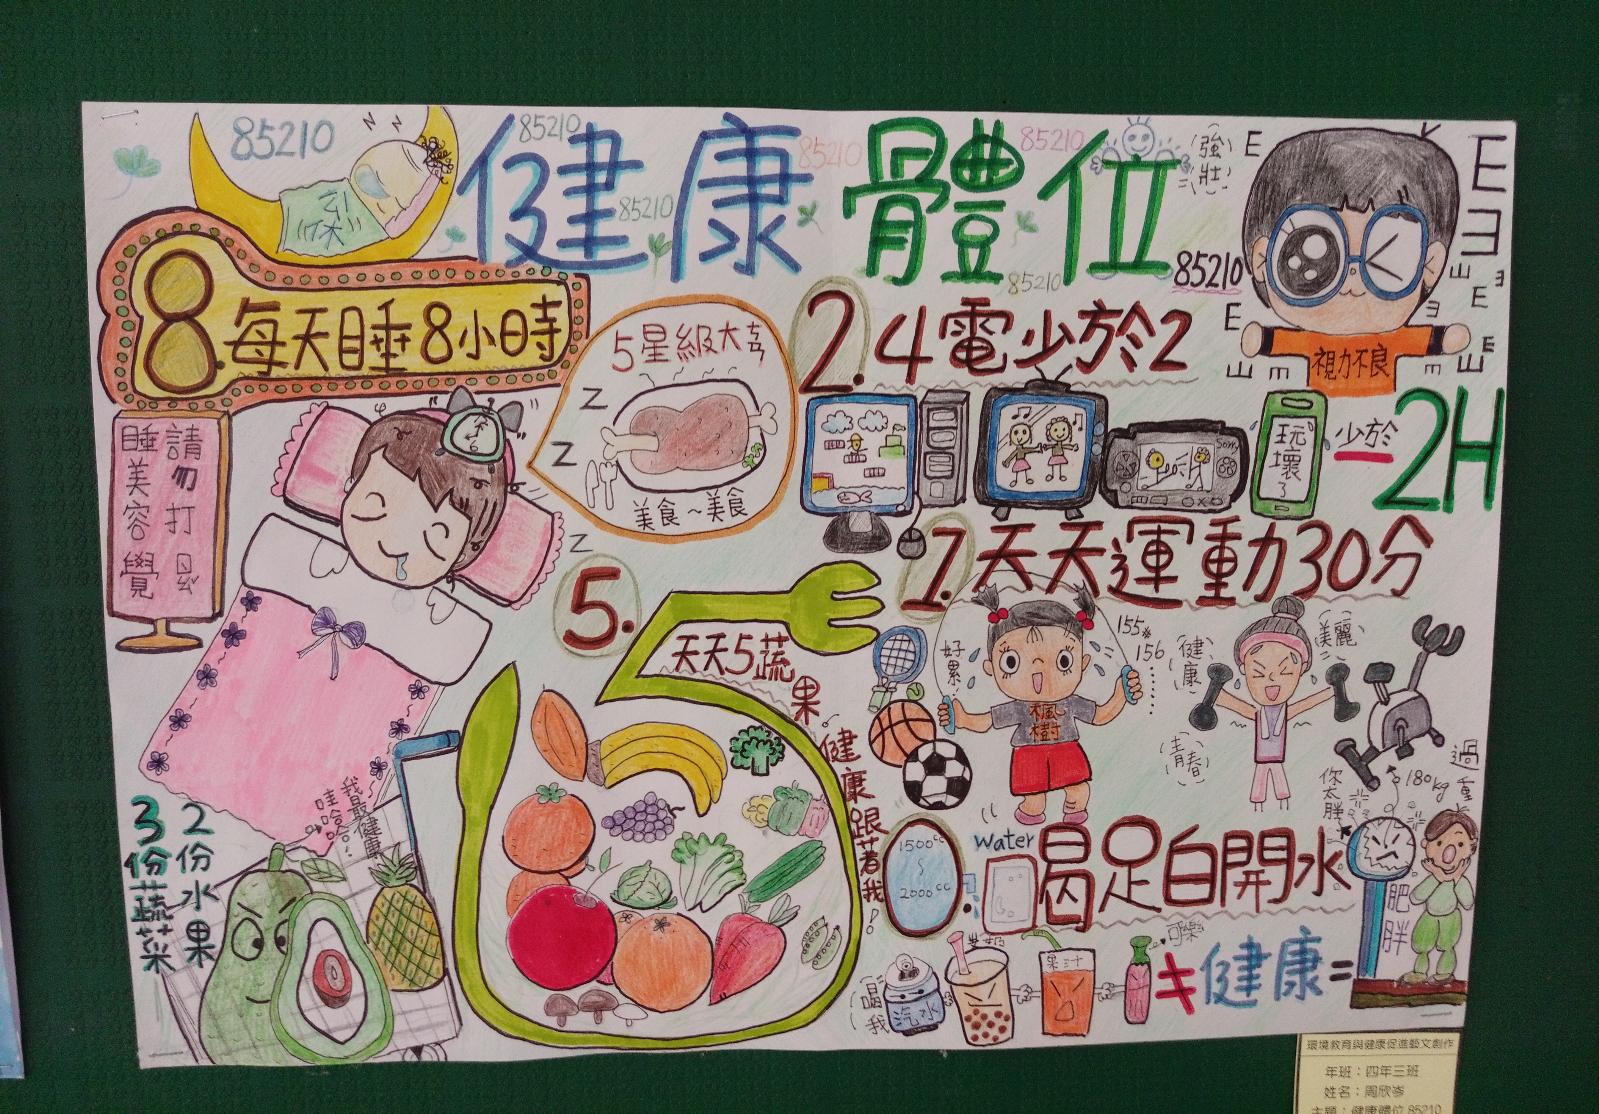 85210
健康體位
85210
85210
85210
85210
85210
85210
強壯
E
E
Z Z
8.每天睡8小時
請勿打
睡美容覺
5星級大
美食~美食
Z
Z
Z
2.4電少於2
視力不良
玩壞了
少於
2H
1.天天運動30分
好累!
楓樹
155
156
健康
美麗
青春
5.
天天5蔬果
健康跟著我!
我最健康
哇哈哈!
2份水果
3份蔬菜
0.
1500cc
~
2000cc
Water
喝足白開水
你太胖
過重
180kg
肥胖
喝我
汽水
果汁
可樂
健康=
環境教育與健康促進藝文創作
年班:四年三班
姓名:周欣岑
主題:健康體位85210